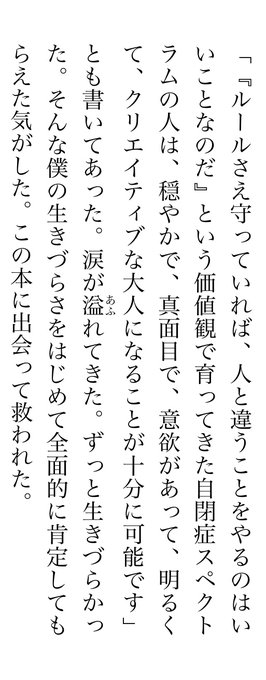 「『ルールさえ守っていれば、人と違うことをやるのはい
いことなのだ』という価値観で育ってきた自閉症スペクト
ラムの人は、穏やかで、真面目で、意欲があって、明るく
て、クリエイティブな大人になることが十分に可能です」
とも書いてあった。涙が溢れてきた。ずっと生きづらかっ
た。そんな僕の生きづらさをはじめて全面的に肯定しても
らえた気がした。この本に出会って救われた。